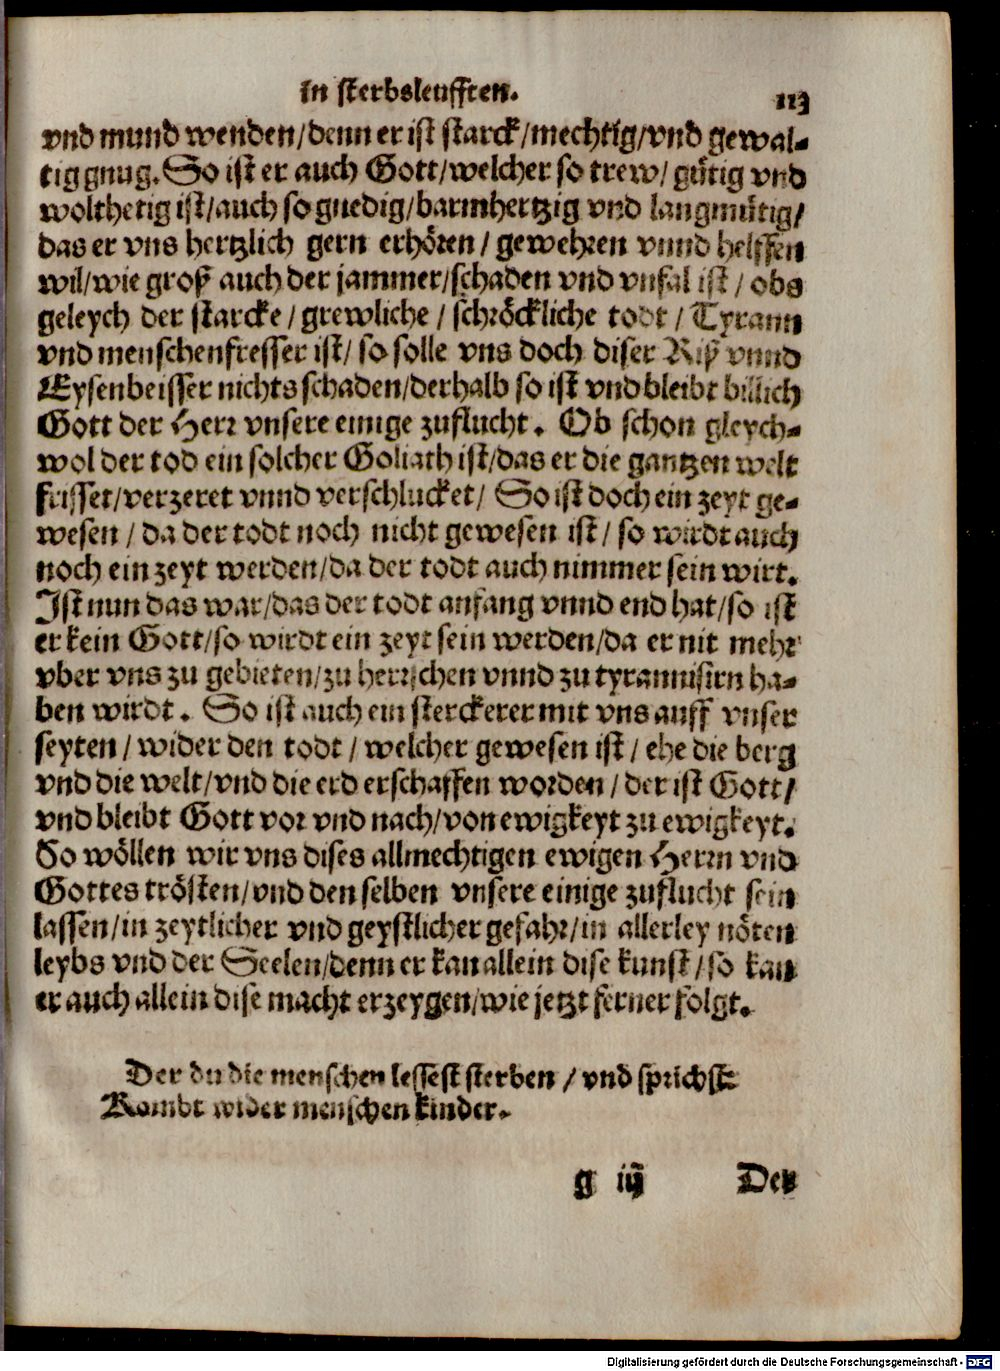 In sterbsleufften.
113
vnd mund wenden/denn er ist starck/mechtig/vnd gewal-
tig gnug. So ist er auch Gott/welcher so trew/ gütig vnd
wolthetig ist/auch so gnedig/barmhertzig vnd langmütig/
das er vns hertzlich gern erhören / gewehren vnnd helffen
wil/wie groß auch der jammer/schaden vnd vnfal ist / obs
geleych der starcke / grewliche / schröckliche todt / Tyrann
vnd menschenfresser ist/ so solle vns doch diser Riß vnnd
Eysenbeisser nichts schaden/derhalb so ist vnd bleibt billich
Gott der Herr vnsere einige zuflucht. Ob schon gleych-
wol der tod ein solcher Goliath ist/das er die gantzen welt
frisset/verzeret vnnd verschlucket/ So ist doch ein zeyt ge-
wesen / da der todt noch nicht gewesen ist/ so wirdt auch
noch ein zeyt werden/da der todt auch nimmer sein wirt.
Ist nun das war/das der todt anfang vnnd end hat/so ist
er kein Gott/so wirdt ein zeyt sein werden/da er nit mehr
vber vns zu gebieten/zu herrschen vnnd zu tyrannisirn ha-
ben wirdt. So ist auch ein sterckerer mit vns auff vnser
seyten / wider den todt / welcher gewesen ist / ehe die berg
vnd die welt/vnd die erd erschaffen worden / der ist Gott/
vnd bleibt Gott vor vnd nach/von ewigkeyt zu ewigkeyt.
So wöllen wir vns dises allmechtigen ewigen Herrn vnd
Gottes trösten/vnd den selben vnsere einige zuflucht sein
lassen/in zeytlicher vnd geystlicher gefahr/in allerley nöten
leybs vnd der Seelen/denn er kan allein dise kunst/so kan
er auch allein dise macht erzeygen/wie jetzt ferner folgt.
Der du die menschen lessest sterben / vnd sprichst
Kombt wider menschen kinder.
g iij Der
Digitalisierung gefördert durch die Deutsche Forschungsgemeinschaft - DFG